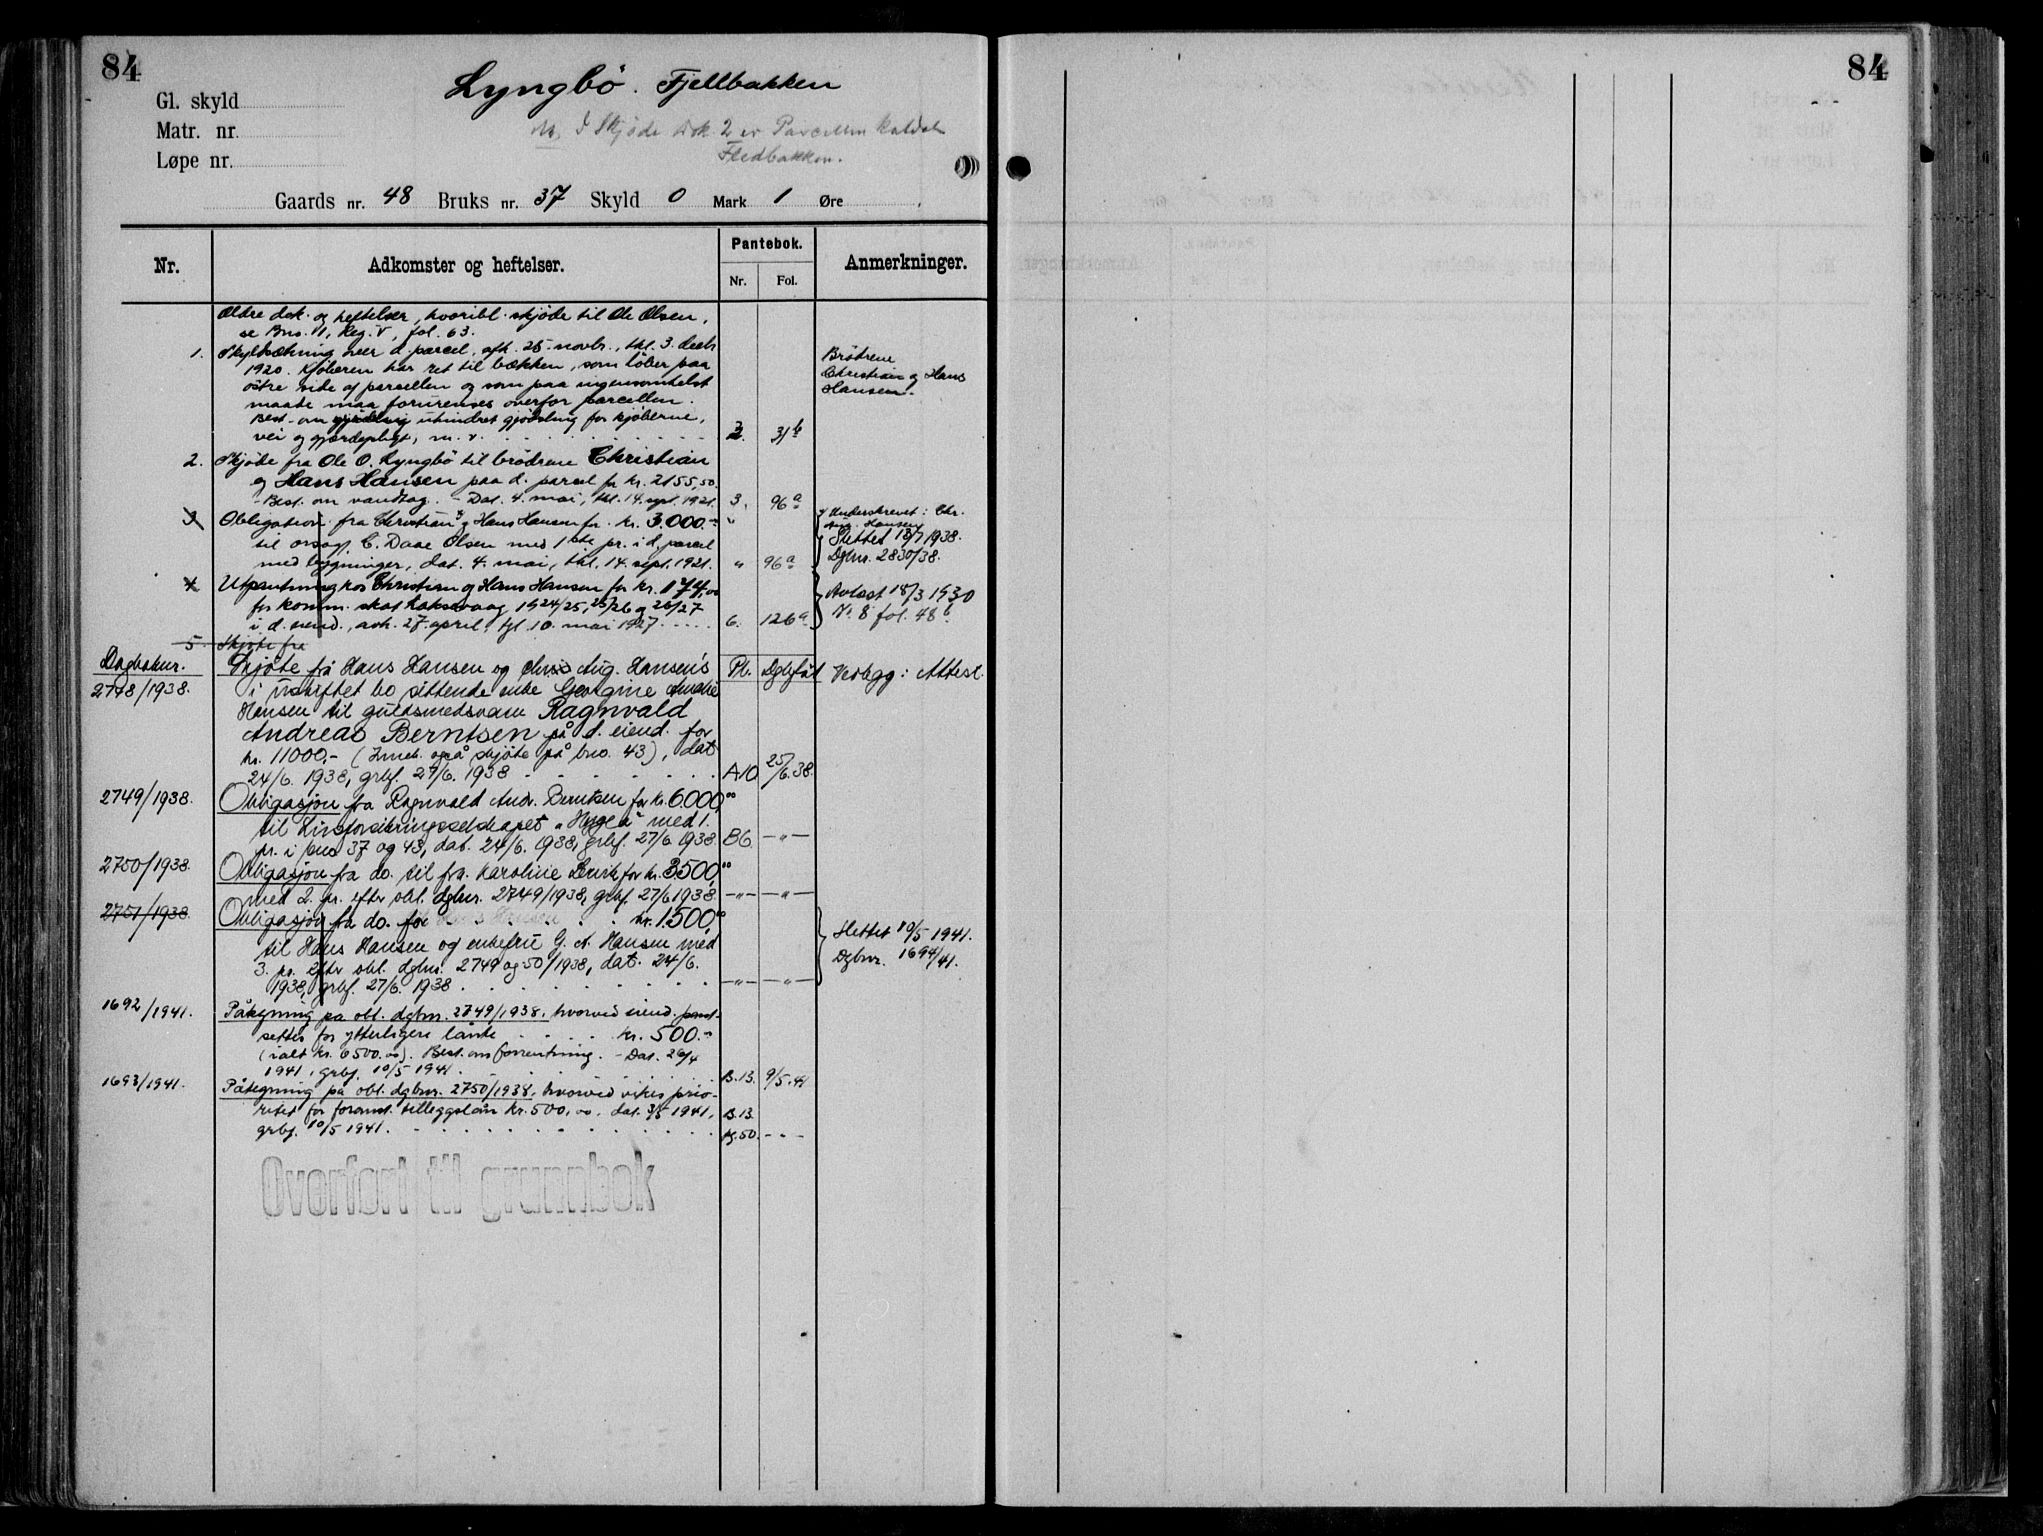 84
Lyngbö. Fjellbakken
Gl. skyld
Matr. nr.
Løpe nr.
I Skjøde Dok. 2 er Parcellen kaldet
Fledbakken.
Gaards nr. 48 Bruks nr. 37 Skyld 0 Mark 1 Øre
Nr. Adkomster og heftelser. Pantebok. Anmerkninger.
Nr. Fol.
Ældre dok. og heftelser, hvoribl. skjøde til Ole Olsen,
se Bno. 11, Reg. V, fol. 63.
1. Skyldsætning over d. parcel, afh. 25. novbr., thl. 3. decbr.
1920. Kjøberen har ret til bækken, som løber paa
østre side af parcellen og som paa ingensomhelst
maade maa forurenses overfor parcellen.
Best. om uhindret gjødsling for kjøberne,
vei og gjærdepligt, m. v. 2. 31 b
Brødrene
Christian og Hans
Hansen.
2. Skjøde fra Ole O. Lyngbö til brødrene Christian
og Hans Hansen paa d. parcel for kr. 2155,50.
- Best. om vandtag. - Dat. 4. mai, thl. 14. sept. 1921. 3. 96 a
3 Obligation fra Christian x) og Hans Hansen for kr. 3.000.-
til orsagf. C. Daae Olsen med 1ste pr. i d. parcel
med bygninger, dat. 4. mai, thl. 14. sept. 1921. " 96 a
x) Underskrevet: Chr.
Aug. Hansen
Slettet 18/7 1938.
Dgbnr. 2830/38.
4 Utpantning hos Christian og Hans Hansen for kr. 174,00
for komm. skat Laksevaag 1924/25, 25/26 og 26/27
i d. eiend., avh. 27. april, tgl. 10. mai 1927. 6. 126 a
Avlæst 18/3 1930
N. 8 fol. 48 b
5. Skjøte fra
Dagboknr. Skjøte fra Hans Hansen og Chris Aug. Hansen's Pb. Dgbføl Vedlegg: Attest.
2748/1938. i uskiftet bo sittende enke Georgine Amalie
Hansen til gullsmedsvenn Ragnvald
Andreas Berntsen på d. eiend. for
kr. 11000,- (Inneb. også skjøte på bno. 43), dat
24/6. 1938, grbf. 27/6. 1938 A10 25/6.38.
2749/1938. Obligasjon fra Ragnvald Andr. Berntsen for kr. 6000,00
til Livsforsikringsselskapet "Hygea" med 1.
pr. i bno 37 og 43, dat. 24/6. 1938, grbf. 27/6 1938 B6 -"-
2750/1938. Obligasjon fra do. til frk. Karoline for kr. 3500,00
med 2. pr. efter obl. dgbnr. 2749/1938, grbf. 27/6 1938. -"- -"-
2751/1938. Obligasjon fra do. for kr. 1500,00
til Hans Hansen og enkefru G. A. Hansen med
3. pr. efter obl. dgbnr. 2749 og 50/1938, dat. 24/6.
1938, grbf. 27/6. 1938 -"- -"-
Slettet 10/5 1941.
Dgbnr. 1694/41.
1692/1941. Påtegning på obl. dgbnr. 2749/1938, hvorved eiend. pant-
settes for ytterligere lånte kr. 500.-
(ialt kr. 6500.00). Best. om forrentning. - Dat. 26/4
1941, grbf. 10/5 1941. B.13. 9/5.41
1693/1941. Påtegning på obl. dgbnr. 2750/1938, hvorved vikes prio-
ritet for foranst. tilleggslån kr. 500,00, dat. 3/5 1941, B.13.
grbf. 10/5 1941. 50. -"-
Overført til grunnbok
84